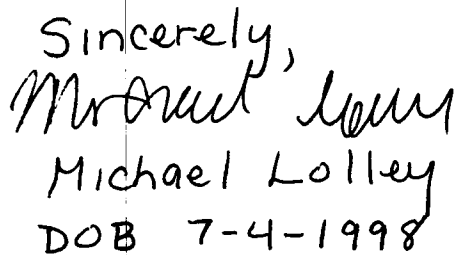 Sincerely,
Michael Lolley
Michael Lolley
DOB 7-4-1998